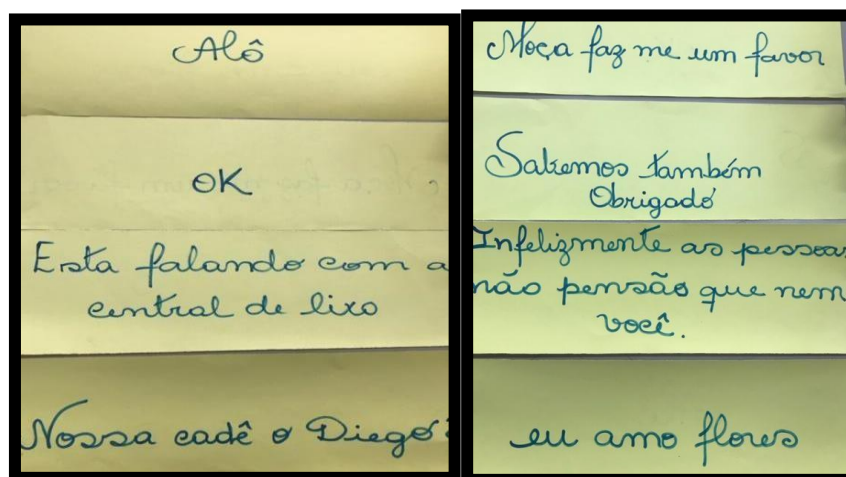 Alô
OK
Esta falando com a
central de lixo
Nossa cadê o Diego?
Moça faz me um favor
Sabemos também
Obrigado
Infelizmente as pessoas
não pensão que nem
você.
eu amo flores